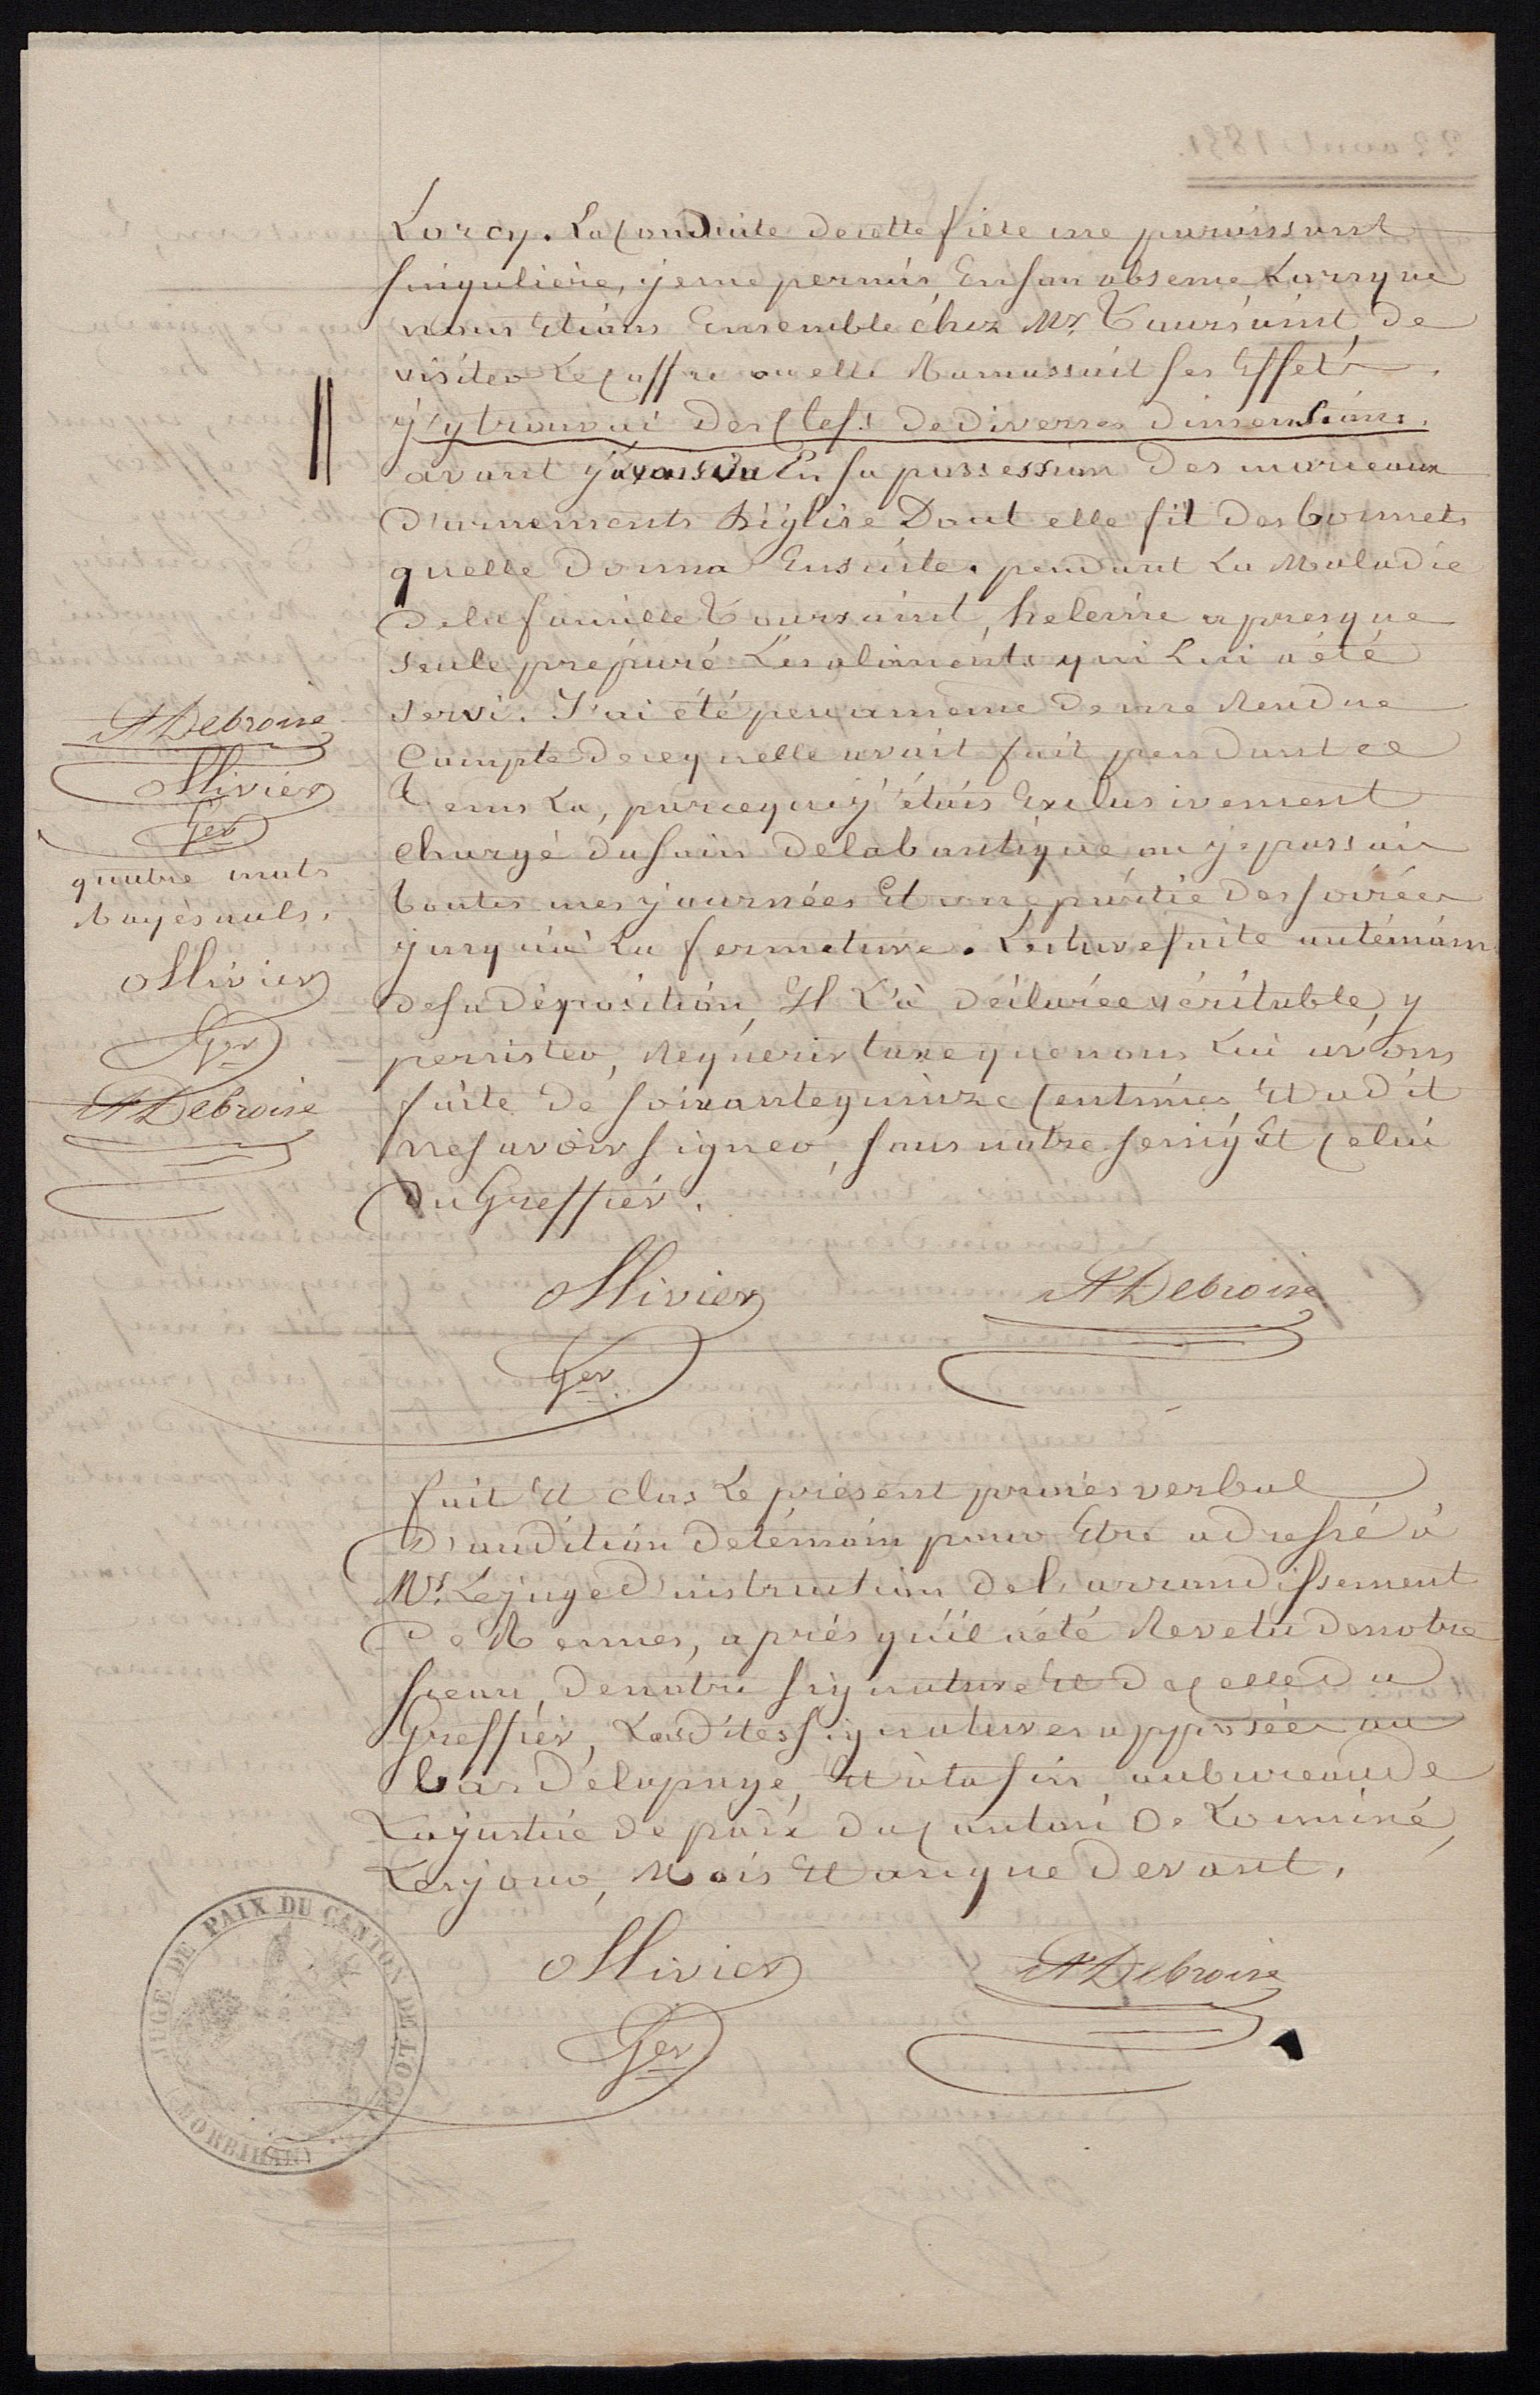 Lorcy. La conduite de cette fille me paraissant
singulière, je me permis, En son absence Lorsque
nous Etions Ensemble chez Mr. Toursaint, de
visiter Le coffre ou elle Ramassait ses Effets.
j'y trouvai Des Clefs De Diverses Dimensions.
avant j'avais vu En sa possession Des morceaux
D'ornements d'église Dont elle fit Des bonnets
quelle Donna Ensuite. pendant La Maladie
De la famille Toursaint, helenne a presque
seule préparé Les aliments qui Lui a été
servi. J'ai été peu a même De me Rendre
Compte De ce quelle avait fait pendant ce
Tems La, parceque j'étais Exclusivement
Chargé du soin de la boutique ou je passais
Toutes mes journées Et une partie Des soirées
jusqu'à La fermeture. Lecture faite au témoin
de sa déposition, Il L'a déclarée véritable, y
persister, Requerir taxe que nous Lui avons
faite De soixante quinze Centimes Et a dit
ne savoir signer, sous notre seing Et Celui
Du Greffier.
Ollivier ADebroise
Ger
ADebroise
Ollivier
Ger
quatre mots
Rayés nuls.
Ollivier
Ger
ADebroise
fait Et clos Le présent procès verbal
D'audition De témoin pour Etre adressé à
Mr. Le juge D'instruction De L'arrondissement
De Rennes, après qu'il a été Revetu De notre
sceau, De notre signature Et De Celle Du
Greffier, Lesdites signatures apposées au
bas De la page, Et à la fin au bureau De
La justice De paix Du Canton De Locminé,
Les jour, Mois Et an que Devant.
Ollivier ADebroise
Ger
JUGE DE PAIX DU CANTON DE LOCM
(MORBIHAN)
22 aout 1851.